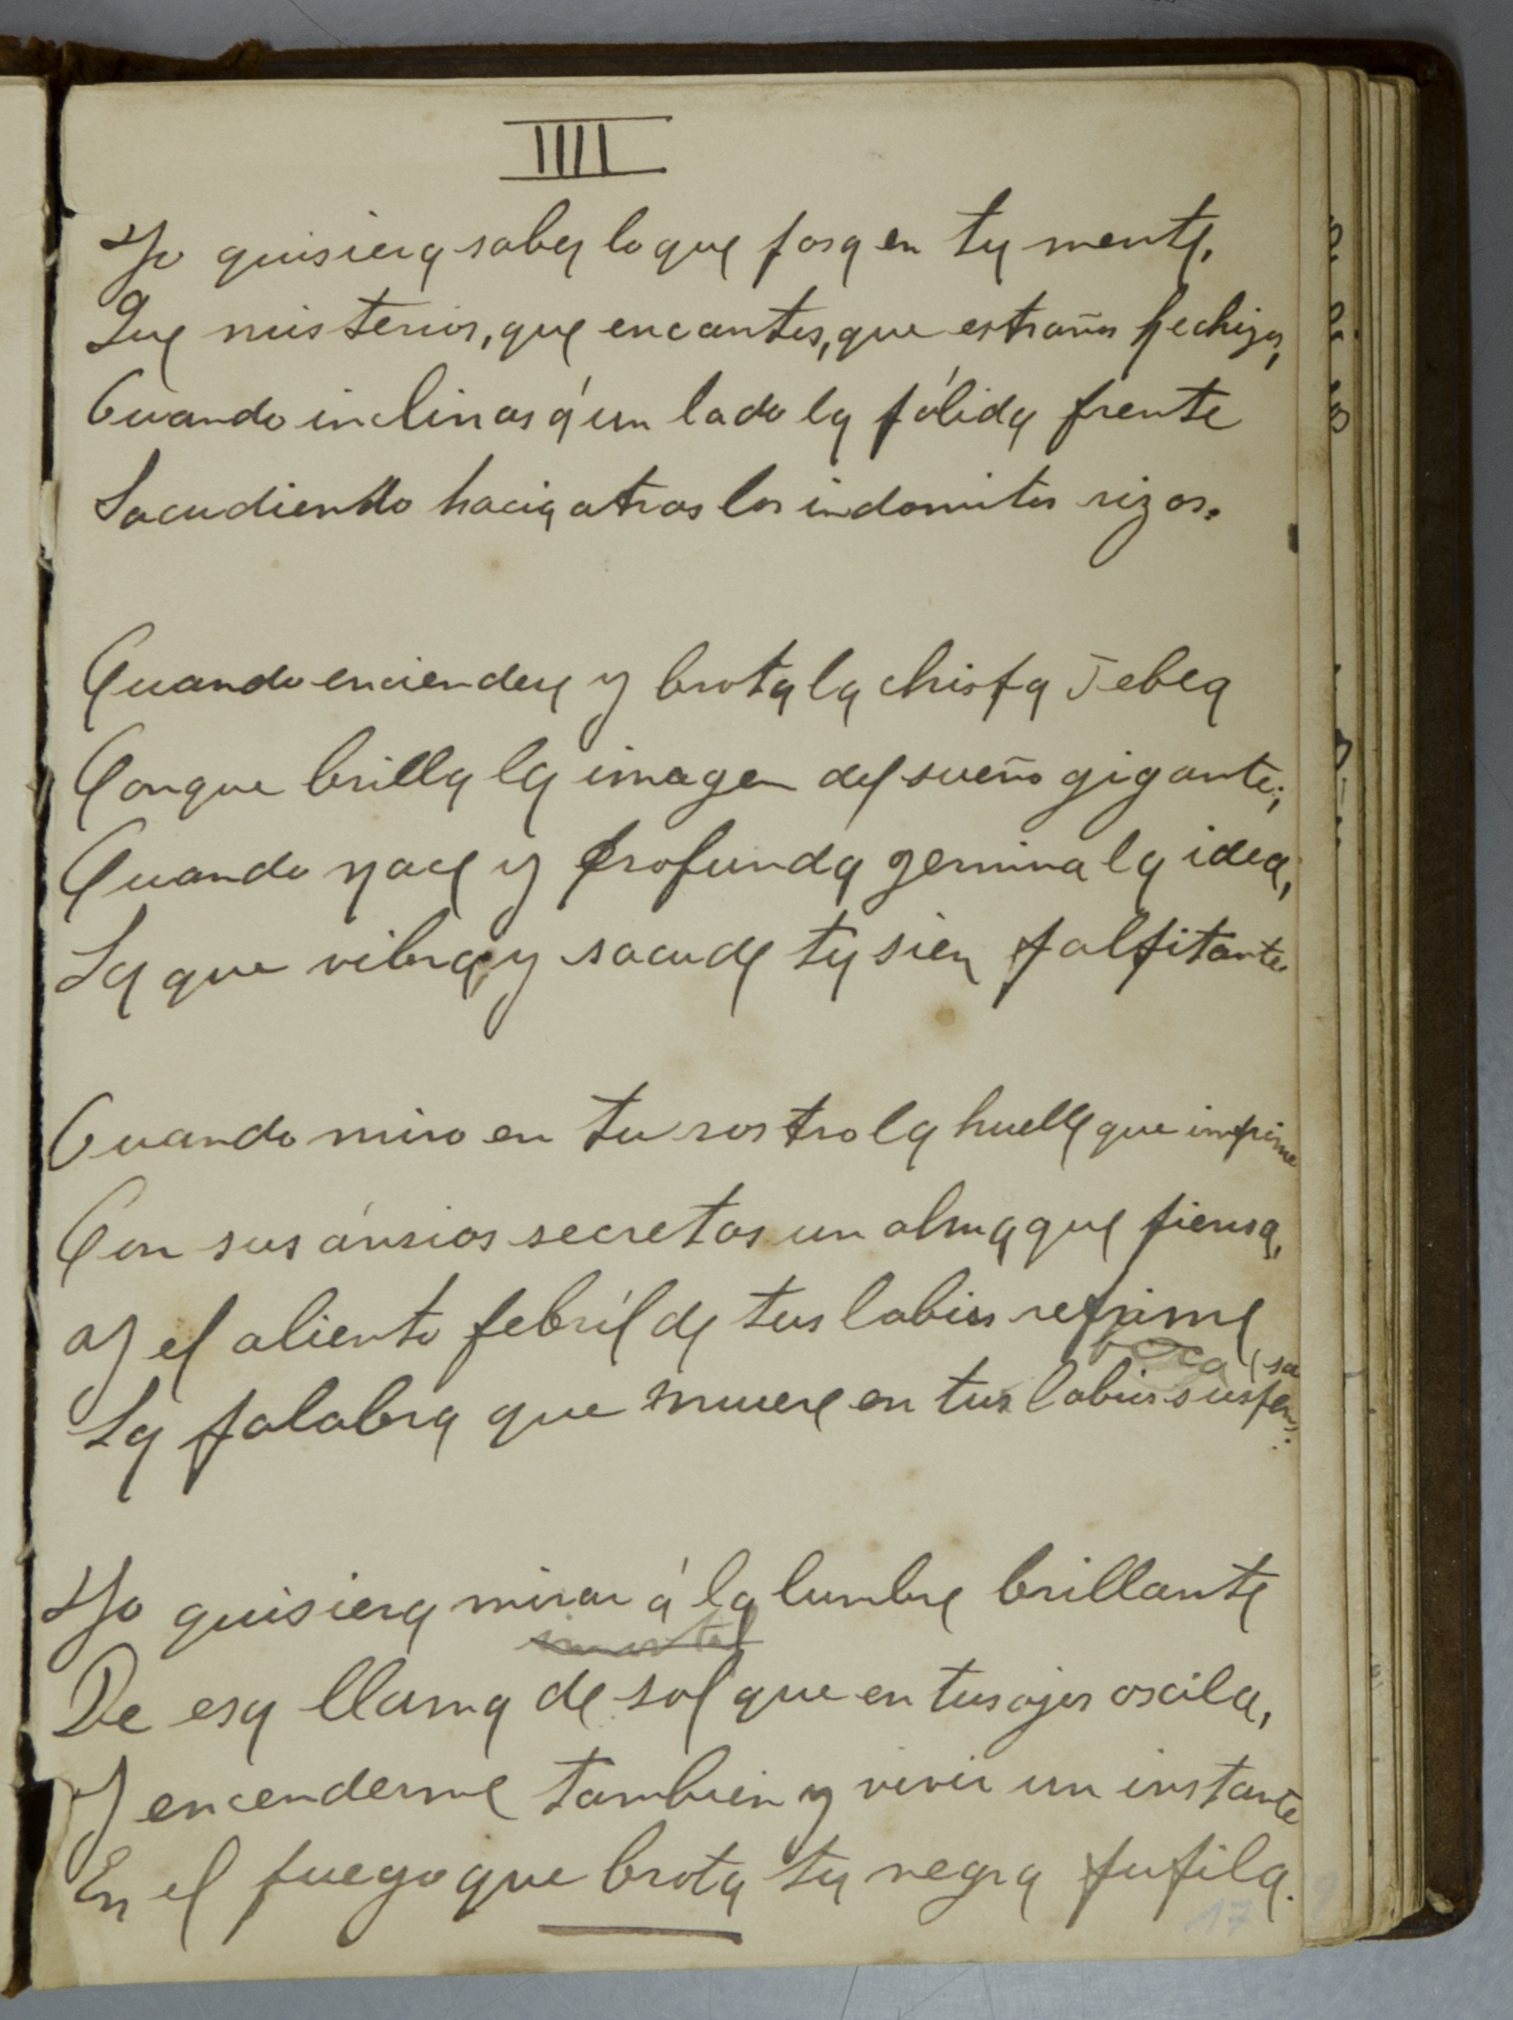 IIII
Yo quisiera saber lo que pasa en tu mente,
Que misterios, que encantos, que estraños hechizos,
Cuando inclinas á un lado la pálida frente
Sacudiendo hacia atras los indomitos rizos.
Cuando enciendes y brota la chispa Febea
Con que brilla la imagen del sueño gigante;
Cuando nace y profunda germina la idea,
La que vibra y sacude tu sien palpitante.
Cuando miro en tu rostro la huella que imprime
Con sus ánsias secretas un alma que piensa,
Y el aliento febríl de tus labios reprime
boca (sa
La palabra que muere en tus labios suspen:
Yo quisiera mirar á la lumbre brillante
inmortal
De esa llama de sol que en tus ojos oscila,
Y encenderme tambien y vivir un instante
En el fuego que brota tu negra pupila.
17